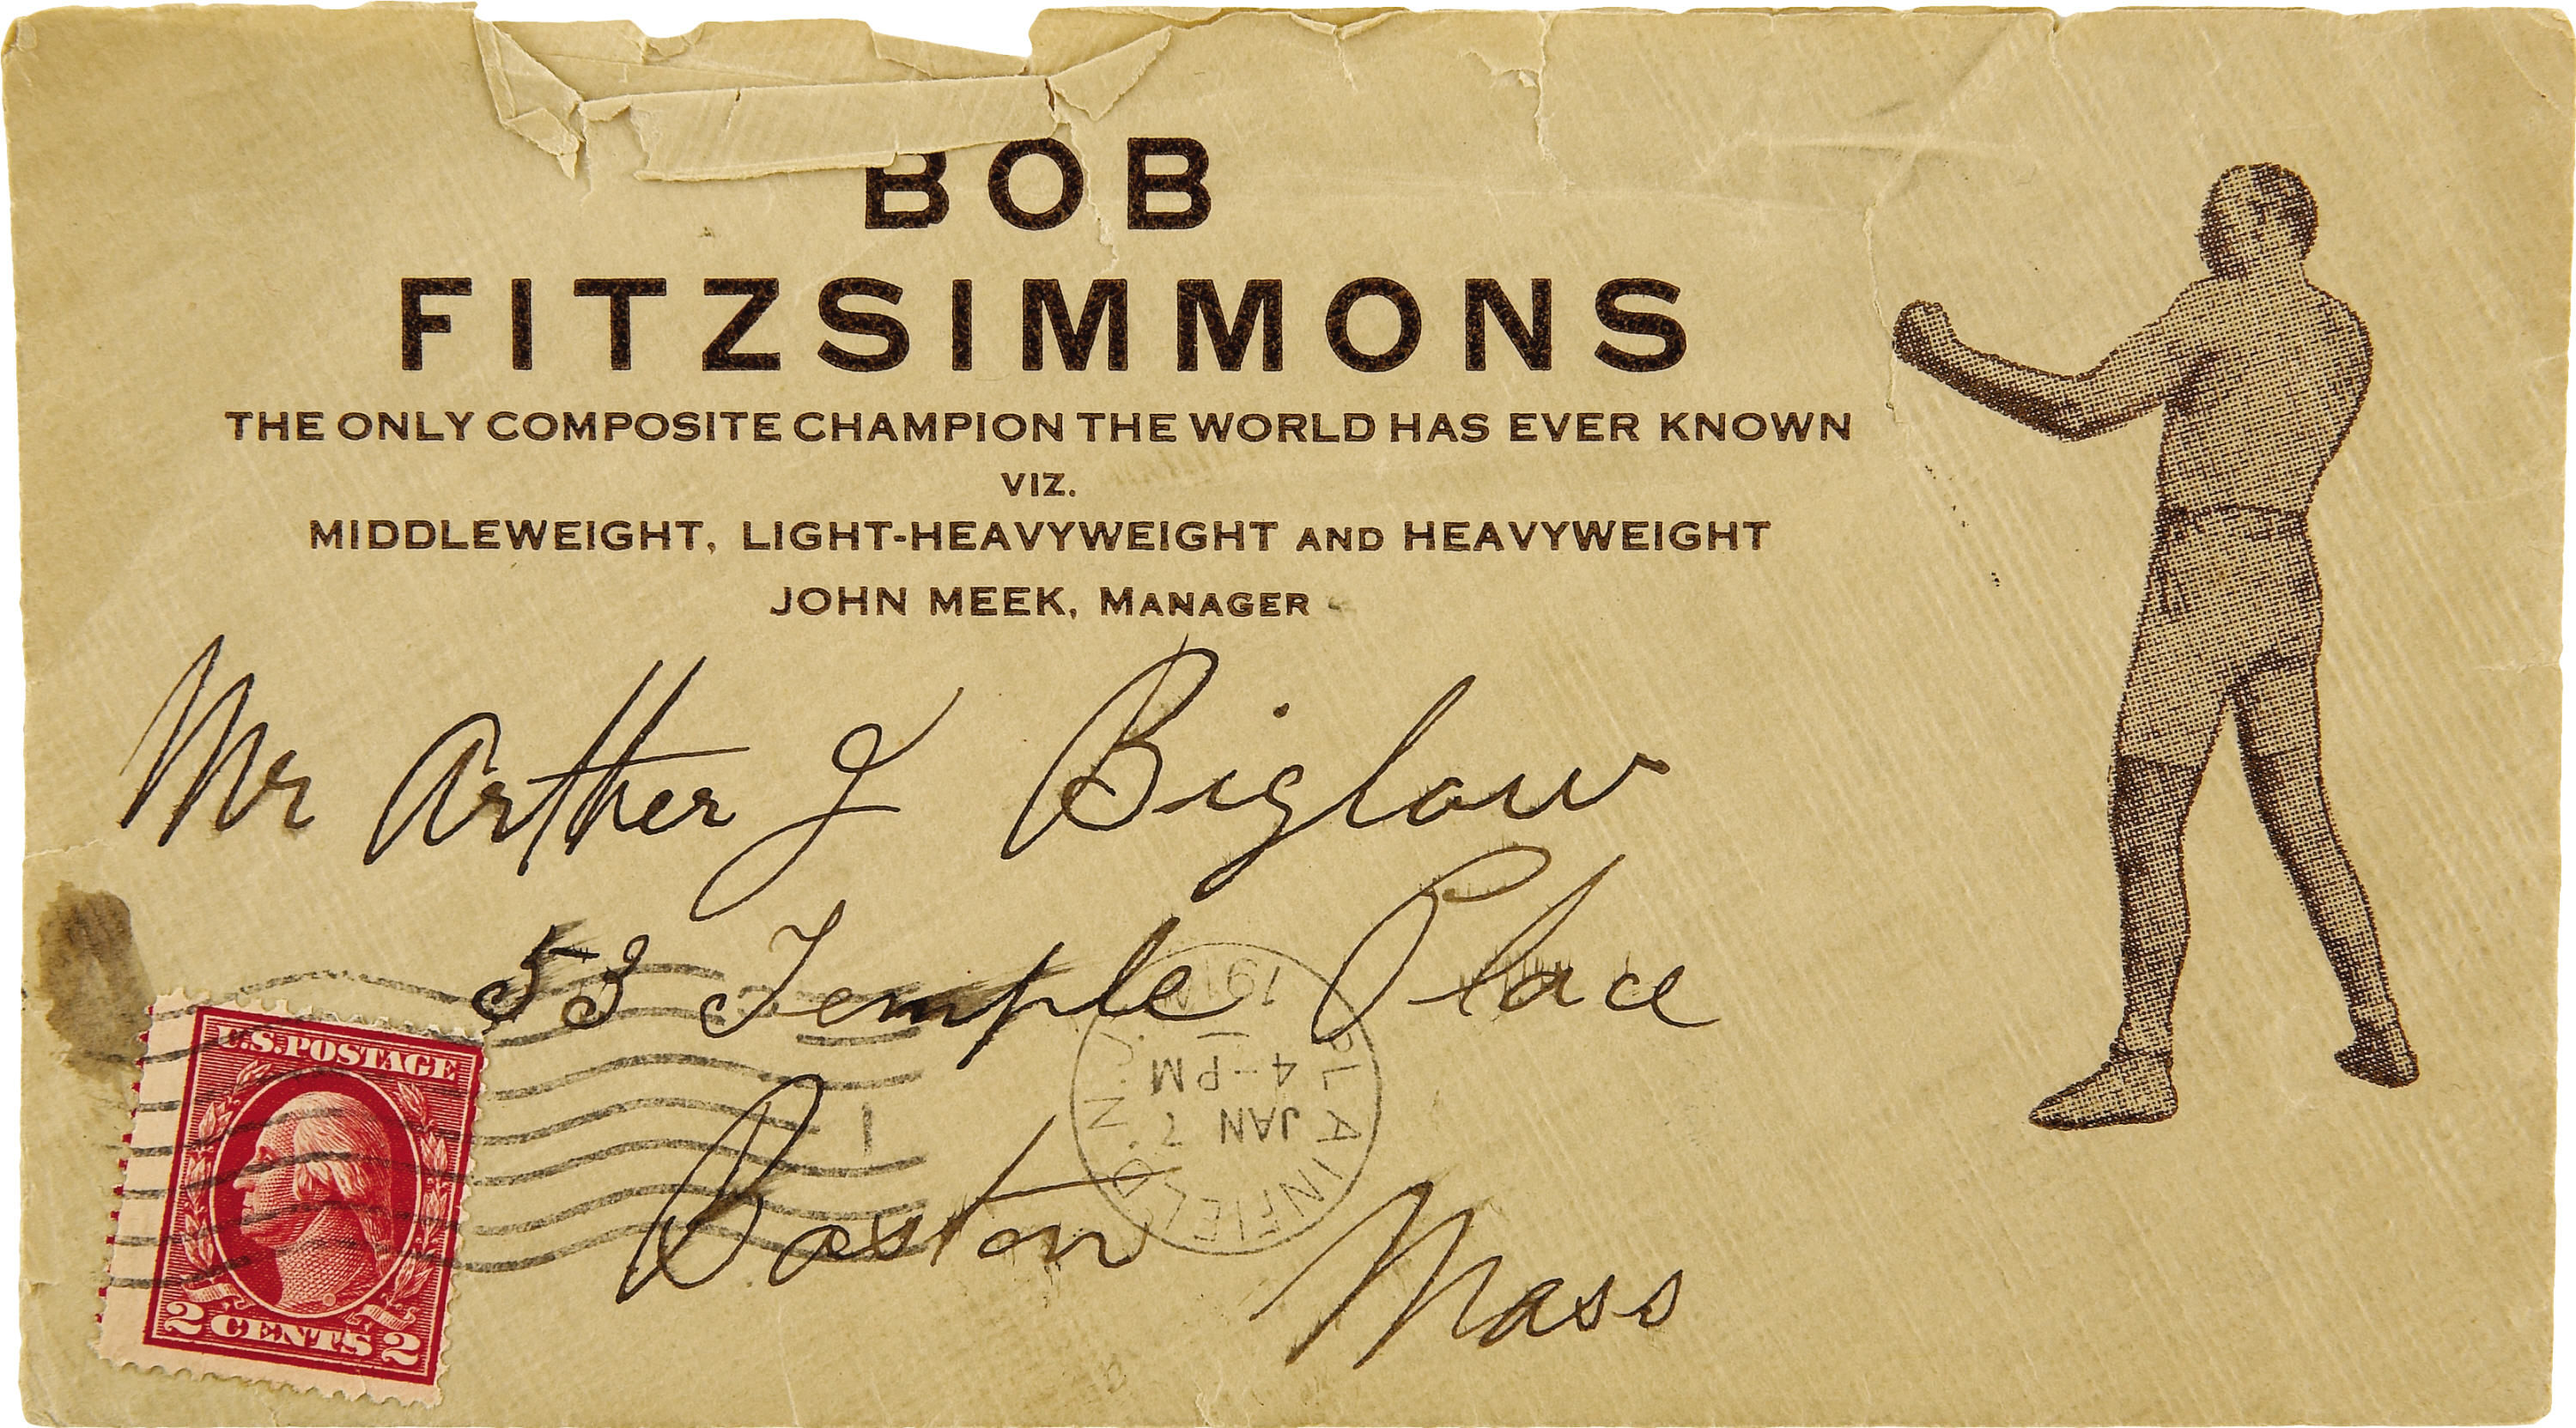 BOB
FITZSIMMONS
THE ONLY COMPOSITE CHAMPION THE WORLD HAS EVER KNOWN
VIZ.
MIDDLEWEIGHT, LIGHT-HEAVYWEIGHT AND HEAVYWEIGHT
JOHN MEEK, MANAGER
Mr Arther J Biglow
53 Temple Place
Boston Mass
U.S. POSTAGE
2 CENTS 2
PLAINFIELD, N.J.
JAN 7
4-PM
1